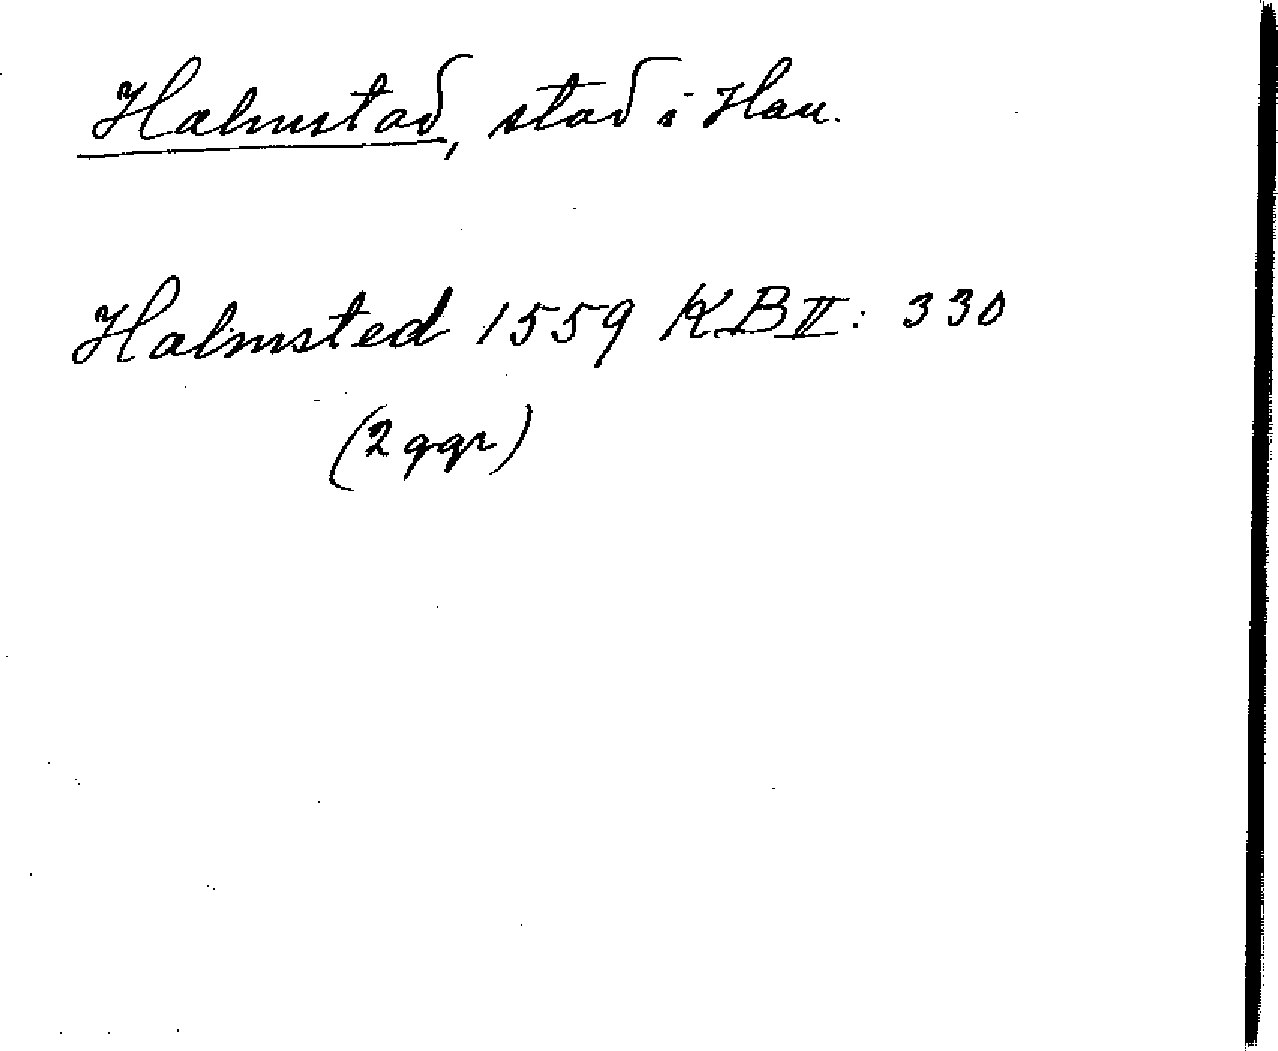 Halmstad, stad i Hall.
Halmsted 1559 KB II: 330
(2 ggr)